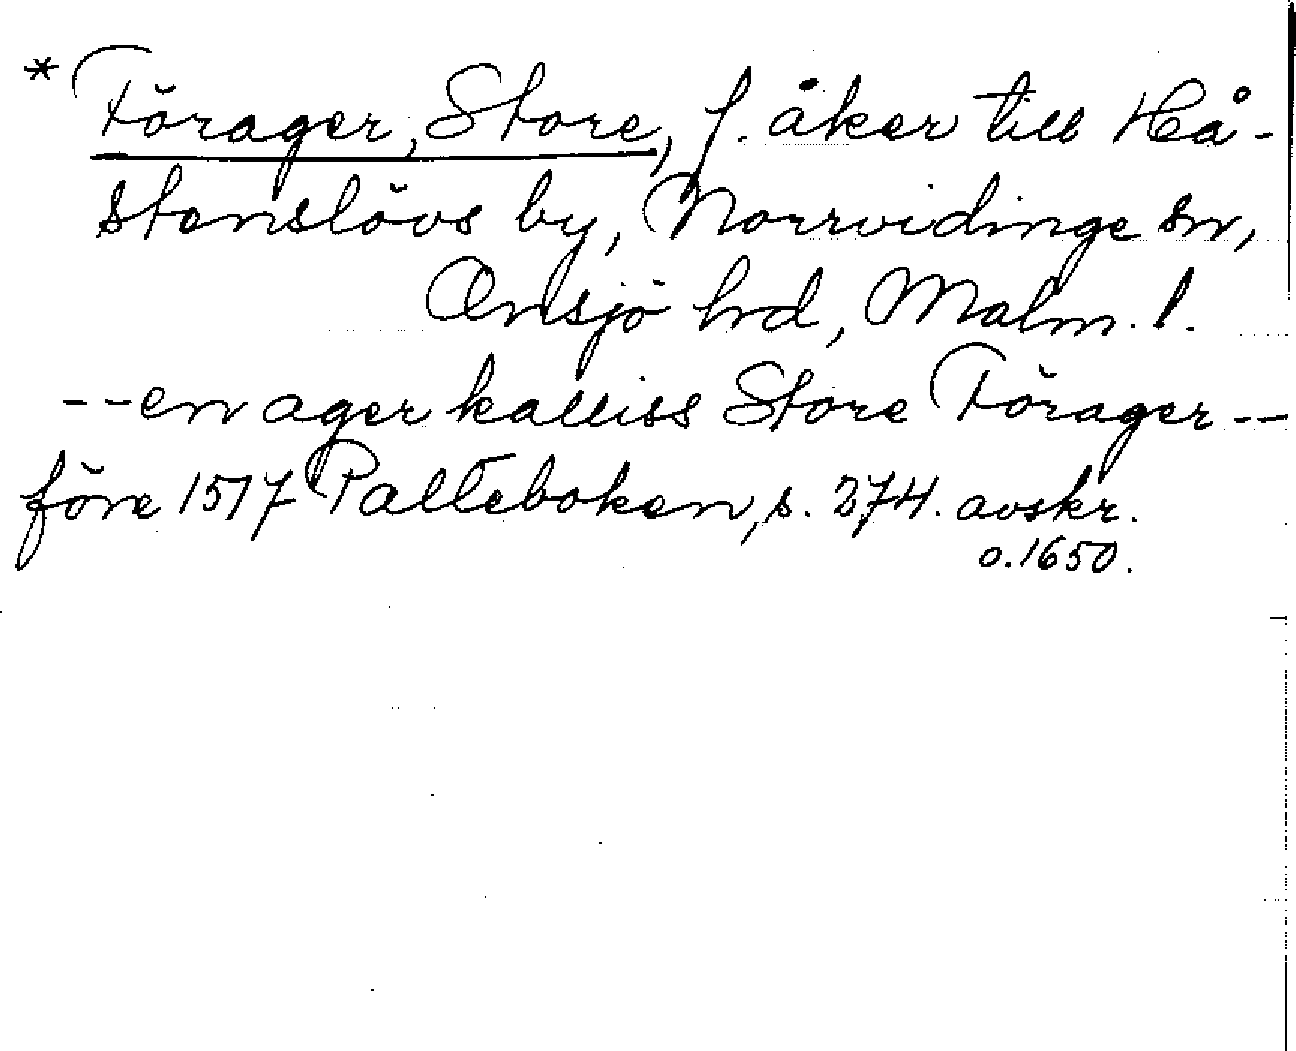 * Förager, Store, f. åker till Hå-
stenslövs by, Norrvidinge sn,
Onsjö hd, Malm. l.
-- en ager kalliss Store Förager --
före 1517 Palteboken, s. 274. avskr.
o. 1650.